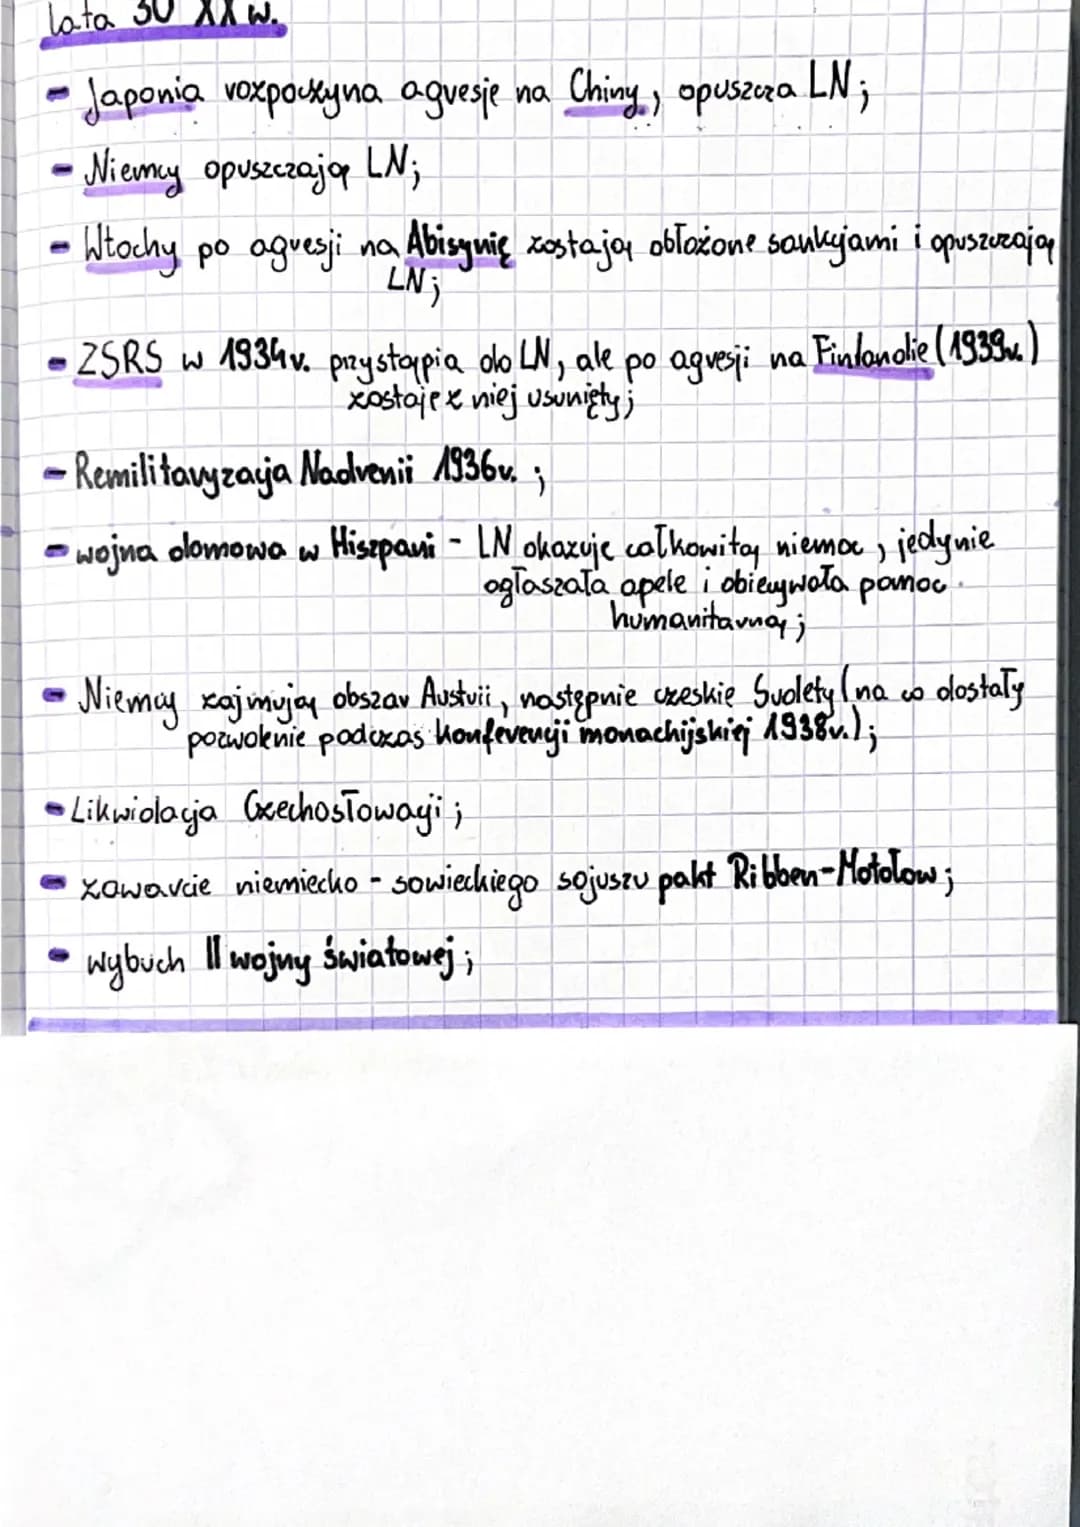 lata 30 XX w.
- Japonia rozpoczyna agresję na Chiny, opuszcza LN;
- Niemcy opuszczają LN;
- Włochy po agresji na Abisynię zostają obłożone sankcjami i opuszczają
LN;
- ZSRS w 1934r. przystąpia do LN, ale po agresji na Finlandie (1939r.)
zostaje z niej usunięty;
- Remilitaryzacja Nadrenii 1936r. ;
- wojna domowa w Hiszpani - LN okazuje całkowitą niemoc, jedynie
ogłaszała apele i obiecywała pomoc
humanitarną;
- Niemcy zajmują obszar Austrii, następnie czeskie Sudety (na co dostały
pozwolenie podczas konferencji monachijskiej 1938r.);
- Likwidacja Czechosłowacji;
- zawarcie niemiecko - sowieckiego sojuszu pakt Ribben-Mototow;
- wybuch II wojny światowej;